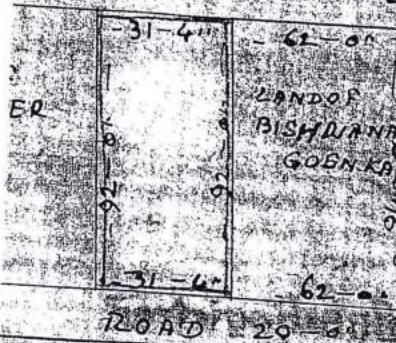 31-4"
62-0"
ER
LAND OF
BISHDIANA
GOENKA
92-0"
92-0"
31-4"
62-0"
ROAD 20-0"